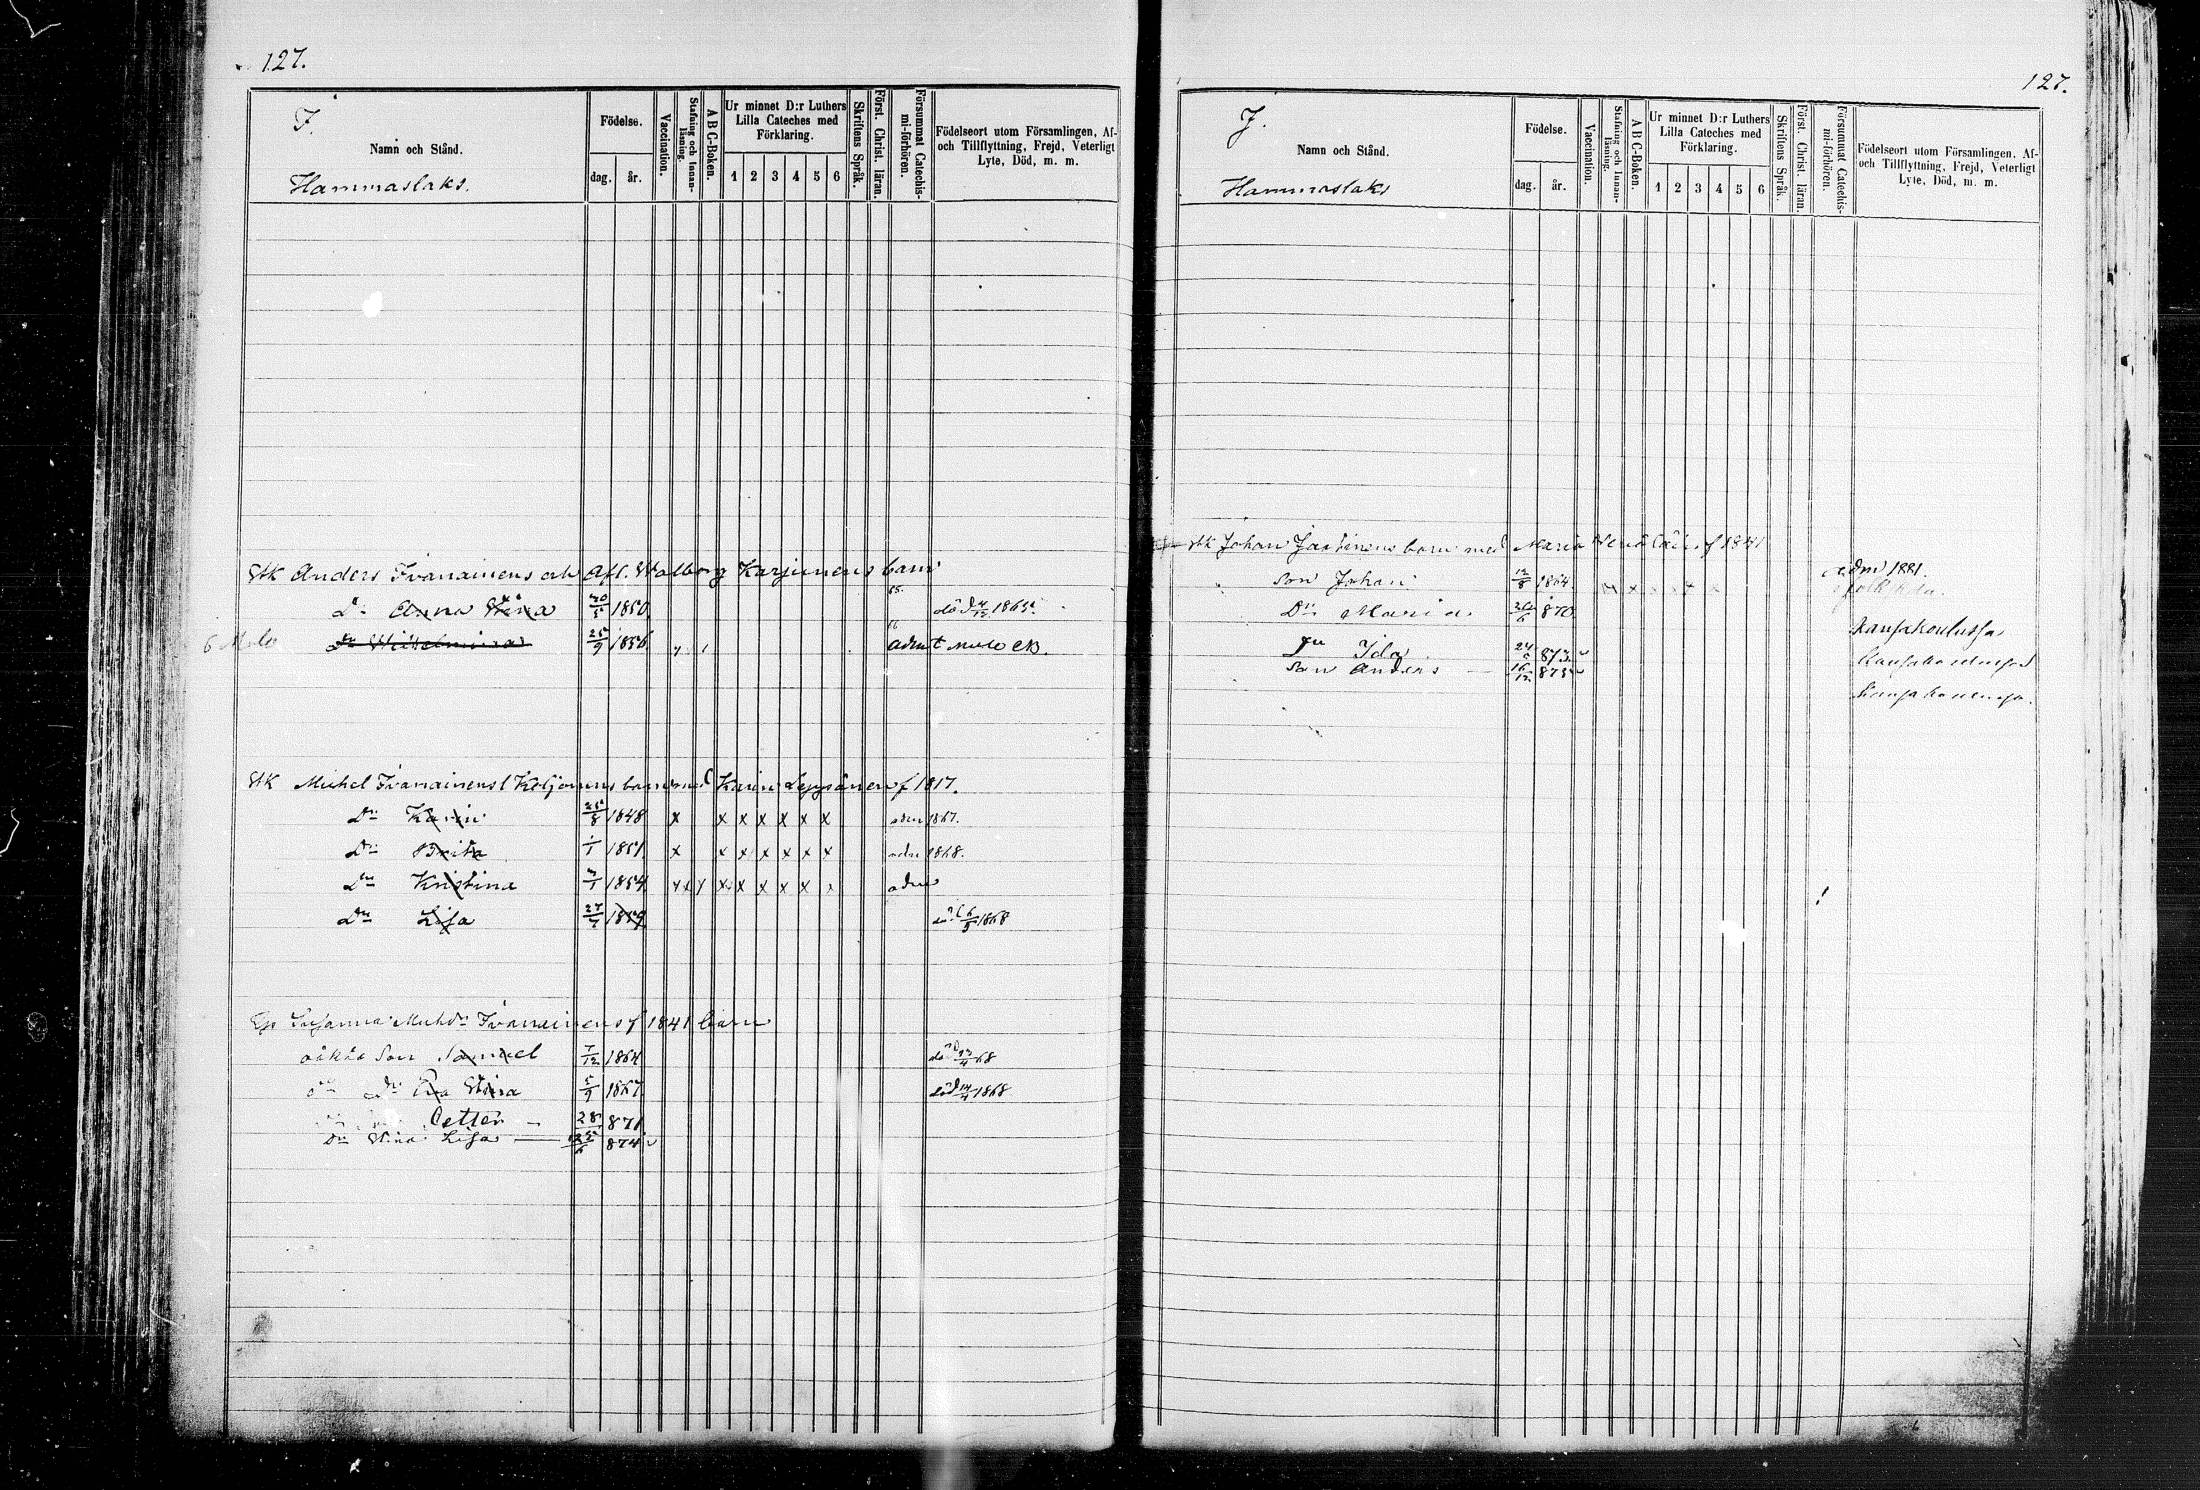 127.
J.
Namn och Stånd.
Hammaslaks.
Födelse.
dag. år.
Vaccination.
Stafning och Innan-läsning.
A B C-Boken.
Ur minnet D:r Luthers Lilla Cateches med Förklaring.
1 2 3 4 5 6
Skriftens Språk.
Först. Christ. läran.
Försummat Catechis-mi-förhören.
Födelseort utom Församlingen, Af- och Tillflyttning, Frejd, Veterligt Lyte, Död, m. m.
Anders Ivanainens och Afl. Walborg Karjunens barn
Dr Anna Stina 1850 död 1865
Wilhelmina 25/9 1856
Michel Ivanainens barn med Karin f 1817.
Dr Karin 25/8 1848 x x x x x x x adm 1867.
Dr Brita 1/1 1851 x x x x x x x adm 1868.
Dr Kristina 1854 x x x x x x adm
Dr Lisa 27/7 1859 död 6/5 1868
Susanna Ivanainens f 1841 barn
oäkta Son Samuel 7/12 1864 död 68
Stina 1867 död 1868
Petter 28 871
Dr Stina Lisa 874
127.
J.
Namn och Stånd.
Hammaslaks
Födelse.
dag. år.
Vaccination.
Stafning och Innan-läsning.
A B C-Boken.
Ur minnet D:r Luthers Lilla Cateches med Förklaring.
1 2 3 4 5 6
Skriftens Språk.
Först. Christ. läran.
Försummat Catechis-mi-förhören.
Födelseort utom Församlingen, Af- och Tillflyttning, Frejd, Veterligt Lyte, Död, m. m.
Johan barn med Maria f 1841
Son Johan 12/8 1864 adm 1881.
Dr Maria 870
kansakoulussa
Ida 873
Son Anders 16/12 875